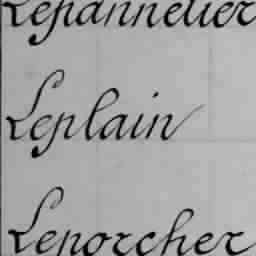 Lepannetier
Leplain
Leporcher